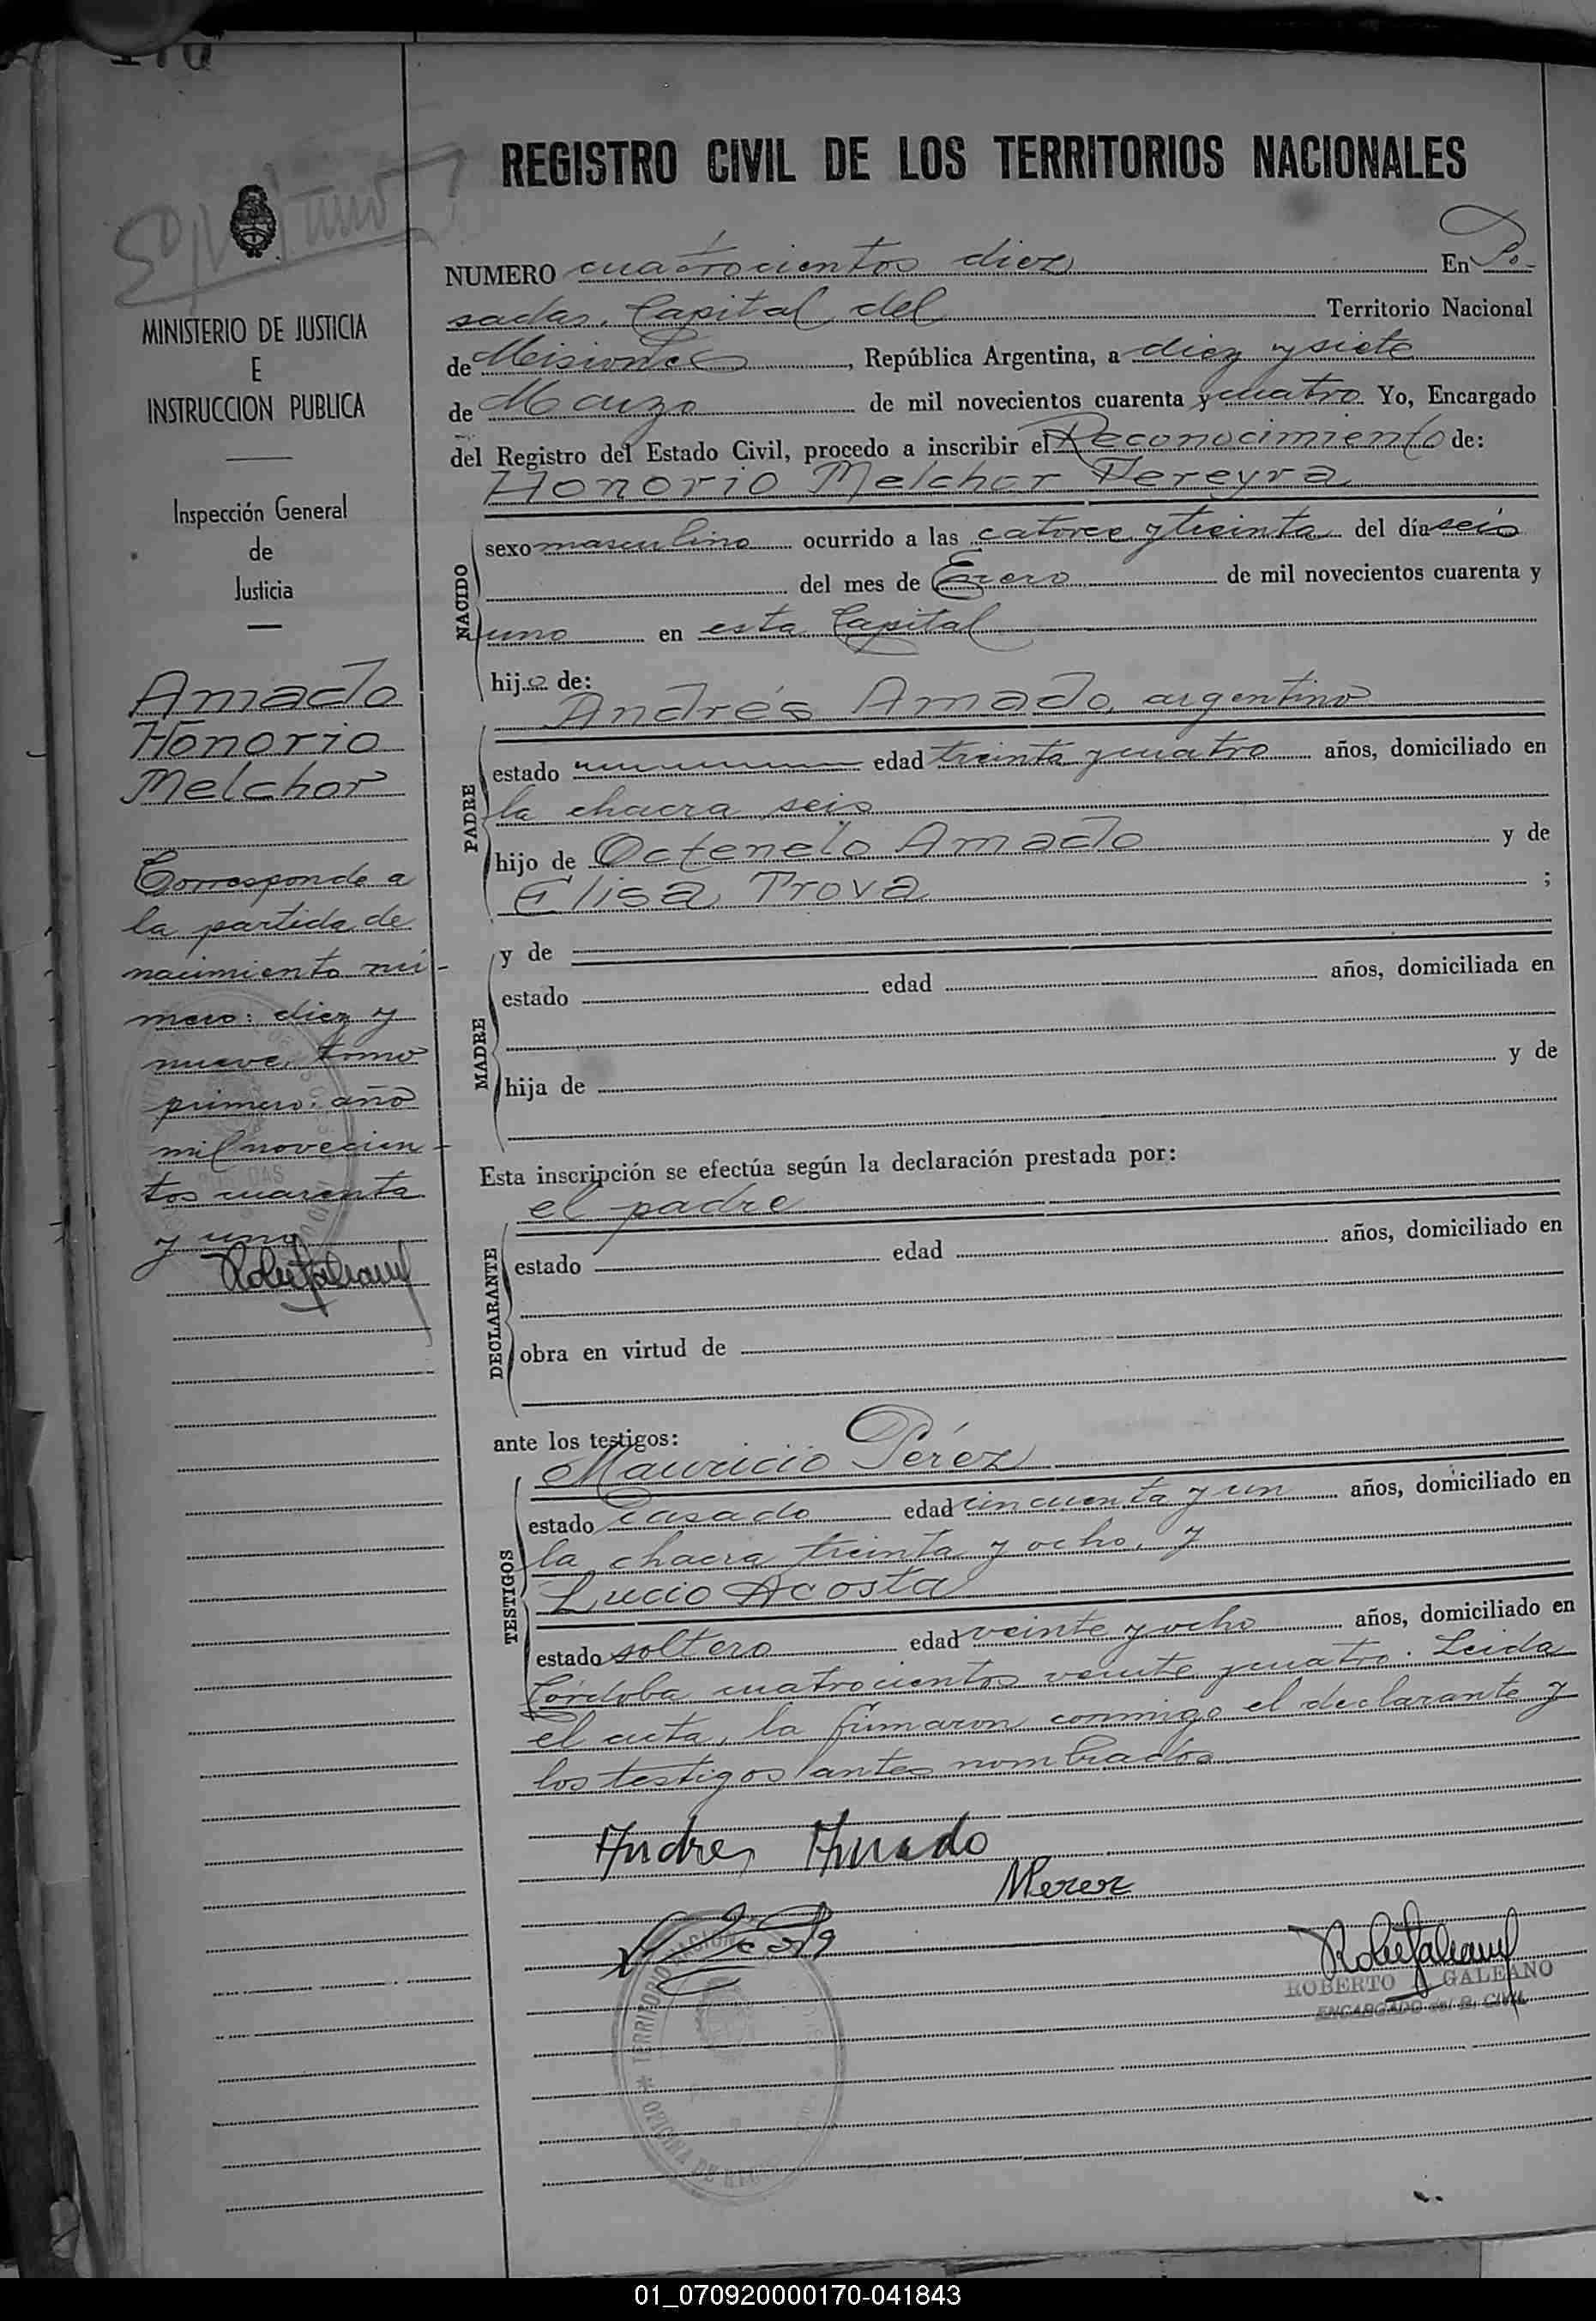 170
REGISTRO CIVIL DE LOS TERRITORIOS NACIONALES
MINISTERIO DE JUSTICIA
E
INSTRUCCION PUBLICA
Inspección General
de
Justicia
Amado
Honorio
Melchor
Corresponde a
la partida de
nacimiento nú-
mero: diez y
nueve, tomo
primero, año
mil novecien-
tos cuarenta
y uno
NUMERO cuatrocientos diez En Po-
sadas, Capital del Territorio Nacional
de Misiones, República Argentina, a diez y siete
de Marzo de mil novecientos cuarenta y cuatro Yo, Encargado
del Registro del Estado Civil, procedo a inscribir el Reconocimiento de:
Honorio Melchor Pereyra
NACIDO
sexo masculino ocurrido a las catorce y treinta del día seis
del mes de Enero de mil novecientos cuarenta y
uno en esta Capital
hijo de:
Andrés Amado, argentino
PADRE
estado edad treinta y cuatro años, domiciliado en
la chacra seis
hijo de Octenelo Amado y de
Elisa Trova ;
y de
MADRE
estado edad años, domiciliada en
hija de y de
Esta inscripción se efectúa según la declaración prestada por:
el padre
DECLARANTE
estado edad años, domiciliado en
obra en virtud de
ante los testigos:
Mauricio Pérez
TESTIGOS
estado casado edad cincuenta y un años, domiciliado en
la chacra treinta y ocho, y
Lucio Acosta
estado soltero edad veinte y ocho años, domiciliado en
Córdoba cuatrocientos veinte y cuatro. Leida
el acta, la firmaron conmigo el declarante y
los testigos antes nombrados
Andres Amado
MPerez
ROBERTO GALEANO
ENCARGADO del R. CIVIL
TERRITORIO NACION
OFICINA DE REG
01_070920000170-041843